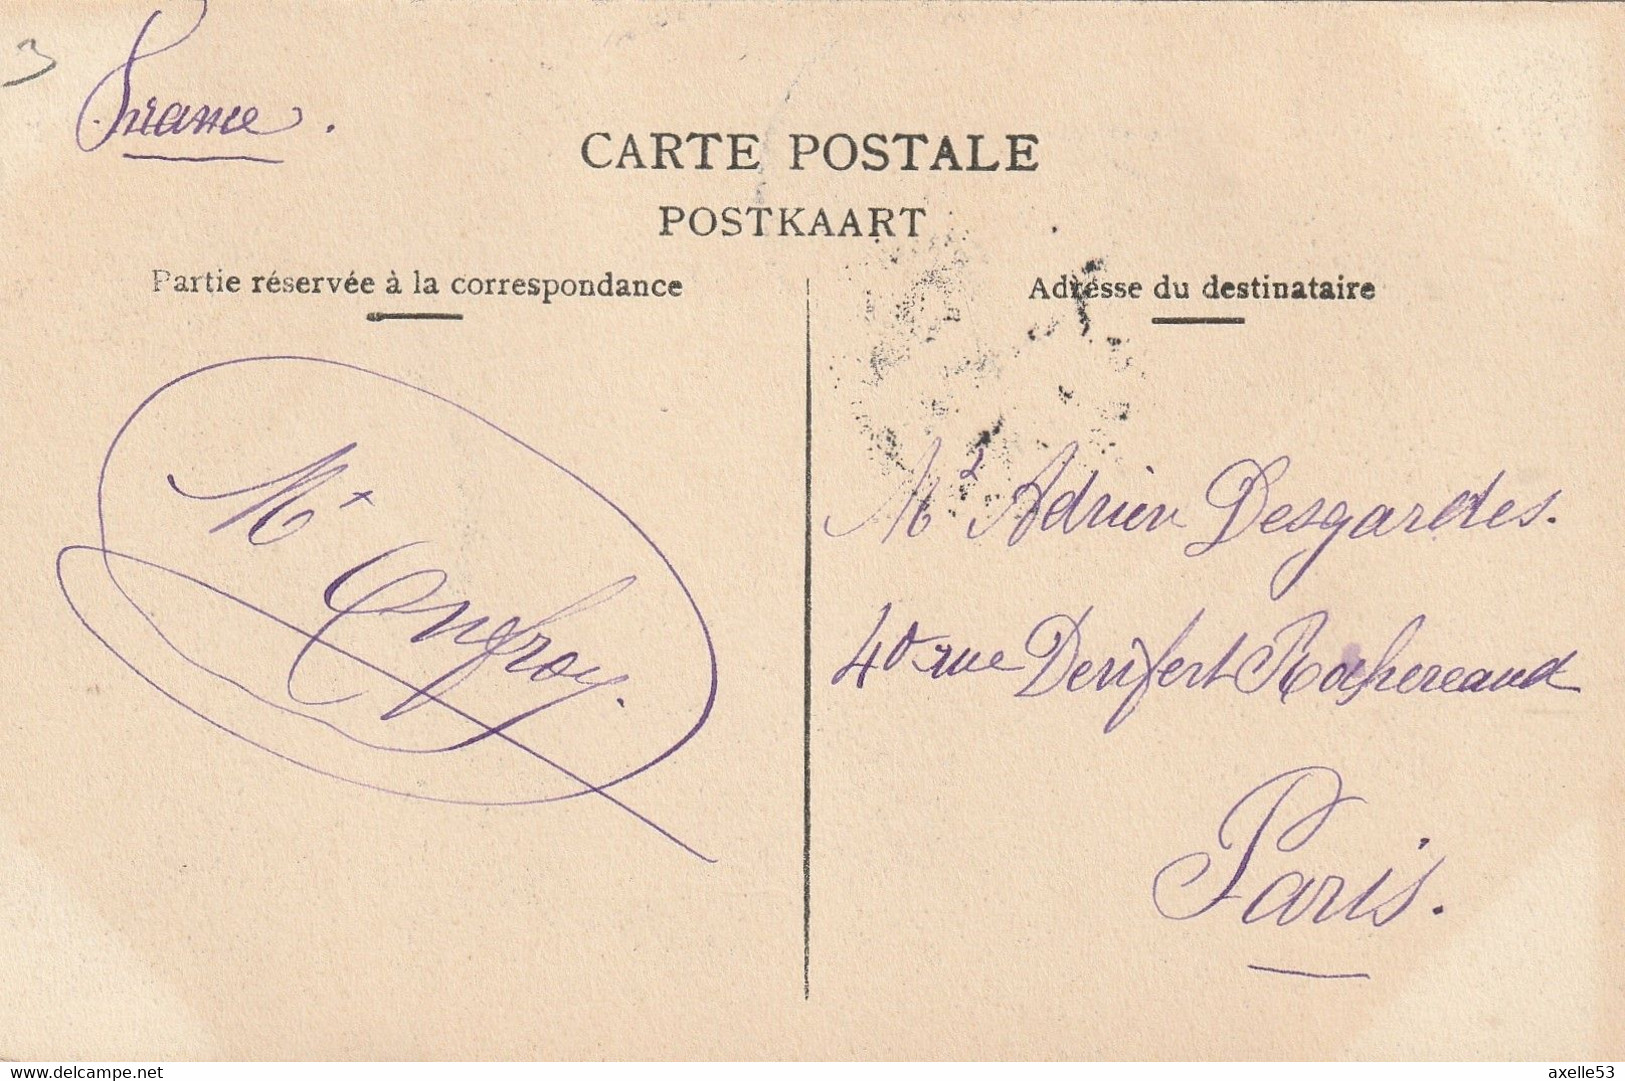 3
France.
CARTE POSTALE
POSTKAART
Partie réservée à la correspondance
Adresse du destinataire
Mt
Enfroy.
Mr Adrien Desgardes.
40 rue Denfert Rochereaud
Paris.
www.delcampe.net
axelle53